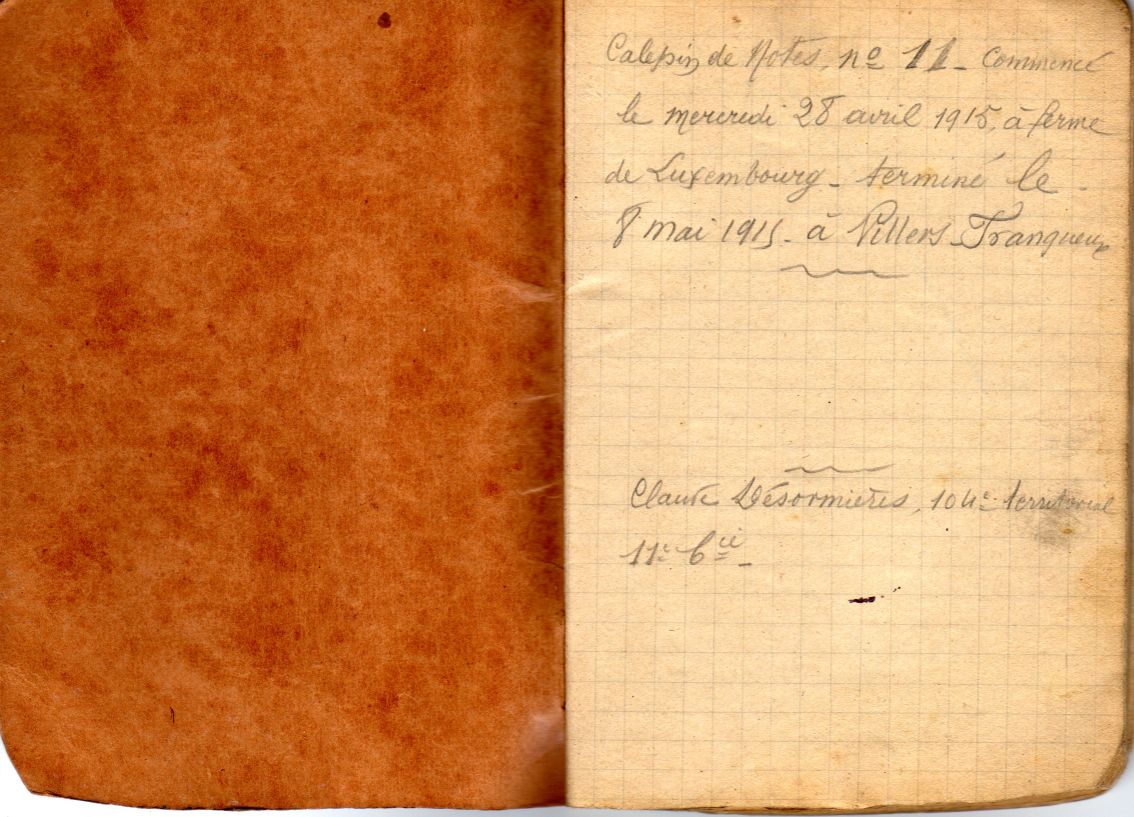 Calepin de Notes, nº 11 - Commencé
le mercredi 28 avril 1915, à ferme
de Luxembourg - terminé le -
8 mai 1915 - à Villers-Franqueux
Claude Désormières, 104e territorial
11e Cie -